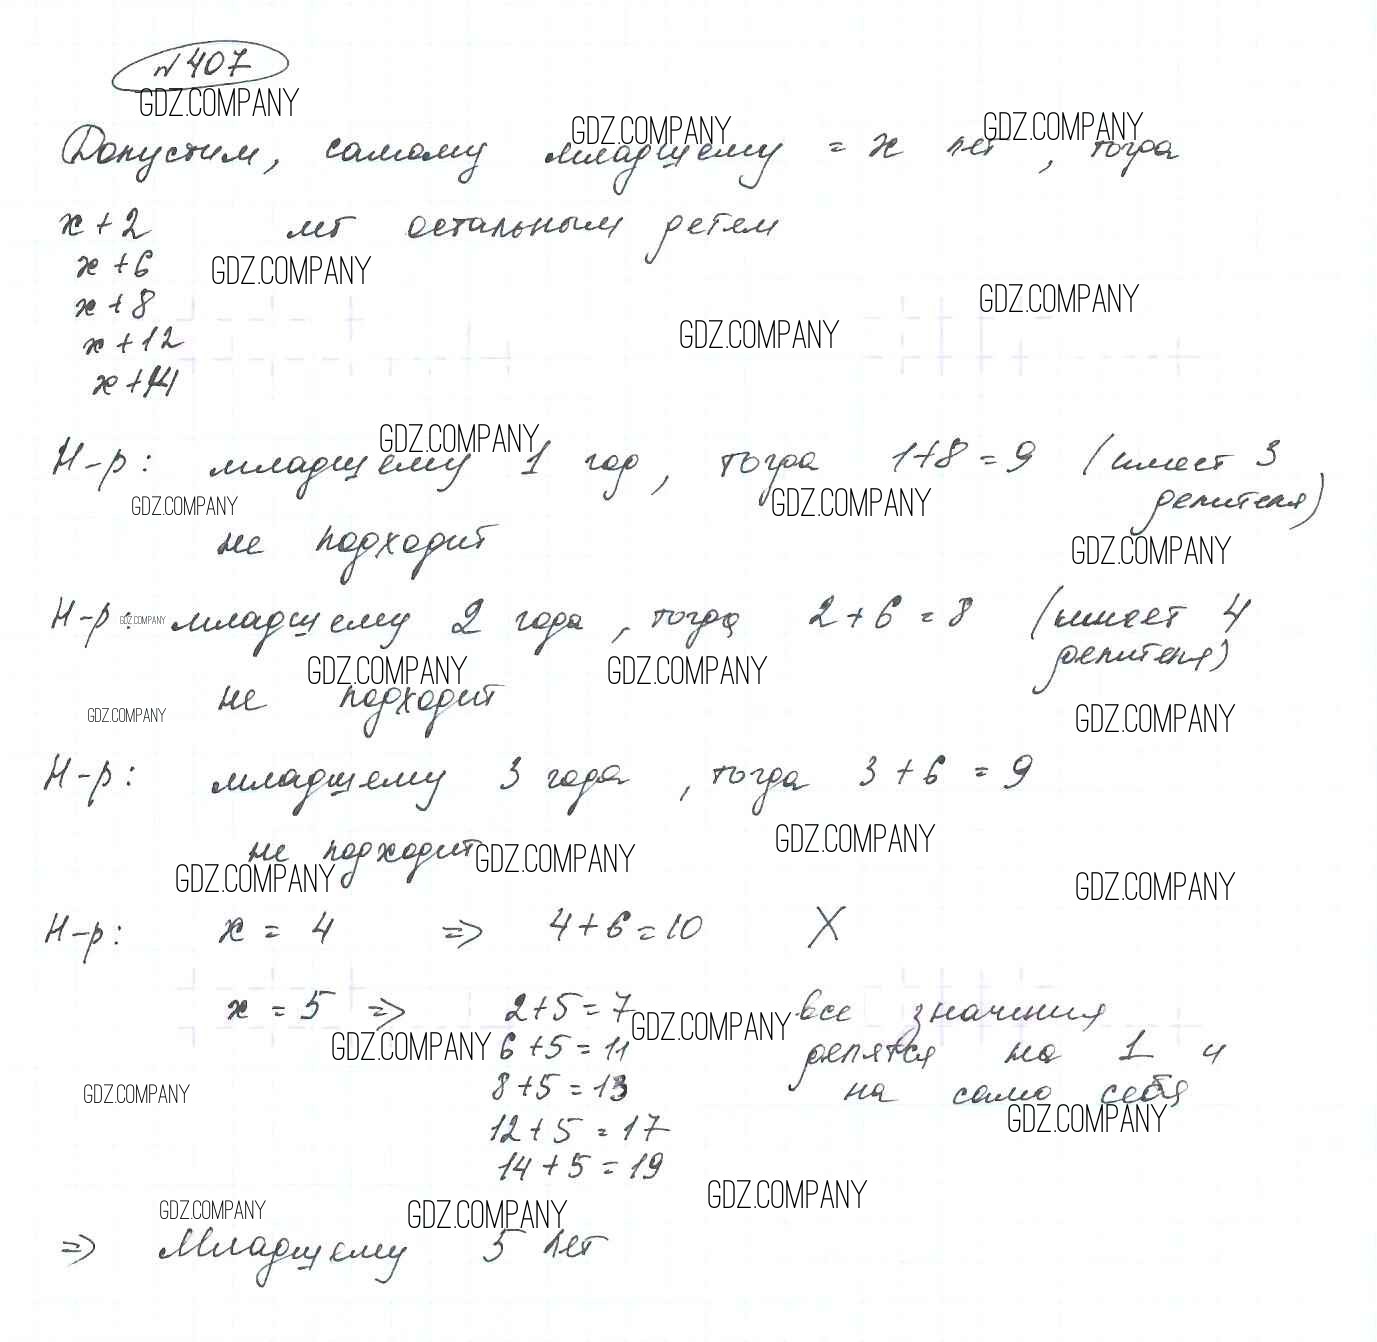 № 407
GDZ.COMPANY
GDZ.COMPANY
GDZ.COMPANY
Допустим, самому младшему = x лет, тогда
x + 2 лет остальным детям
x + 6
GDZ.COMPANY
x + 8
GDZ.COMPANY
GDZ.COMPANY
x + 12
x + 14
GDZ.COMPANY
Н-р: младшему 1 год, тогда 1+8=9 (имеет 3
делителя)
GDZ.COMPANY
GDZ.COMPANY
не подходит
GDZ.COMPANY
Н-р: младшему 2 года, тогда 2+6=8 (имеет 4
GDZ.COMPANY
делителя)
GDZ.COMPANY
GDZ.COMPANY
не подходит
GDZ.COMPANY
GDZ.COMPANY
Н-р: младшему 3 года, тогда 3+6=9
GDZ.COMPANY
не подходит
GDZ.COMPANY
GDZ.COMPANY
GDZ.COMPANY
Н-р: x = 4 => 4+6=10 X
x = 5 => 2+5=7 все значения
GDZ.COMPANY
GDZ.COMPANY
6+5=11 делятся на 1 и
8+5=13 на само себя
GDZ.COMPANY
GDZ.COMPANY
12+5=17
14+5=19
GDZ.COMPANY
GDZ.COMPANY
GDZ.COMPANY
=> Младшему 5 лет